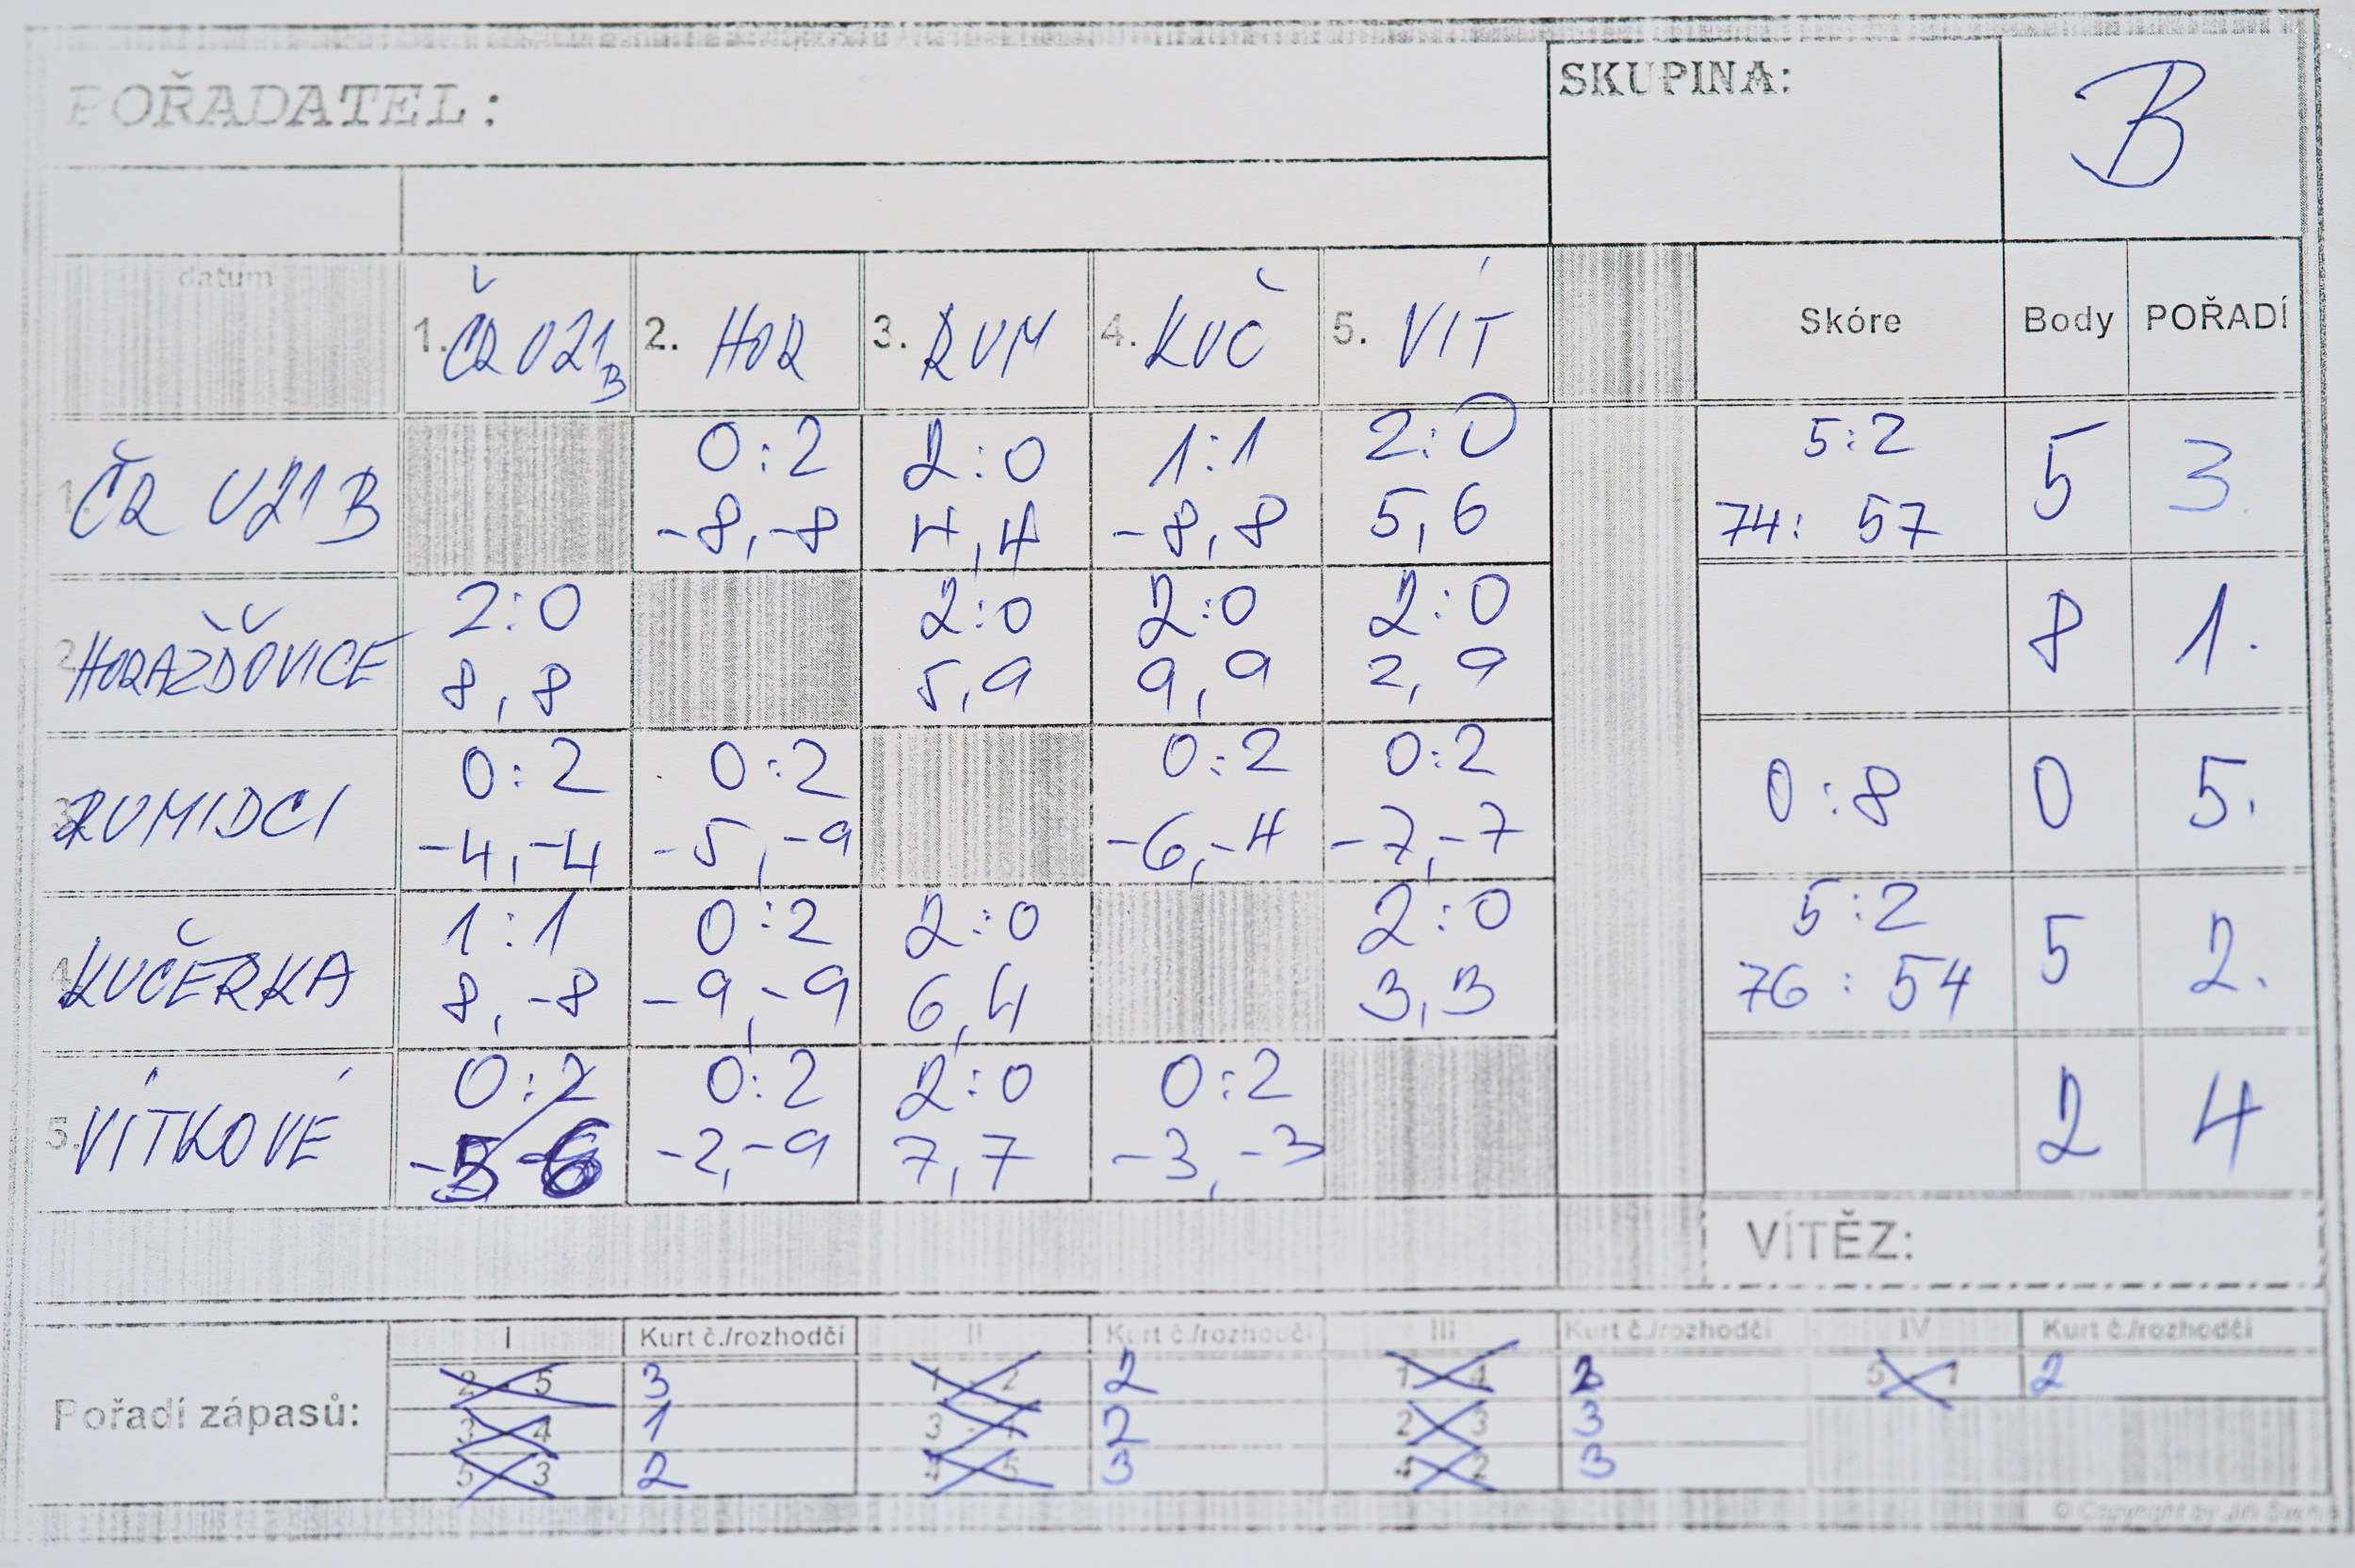 POŘADATEL:
SKUPINA: B
datum 1. ČR U21 B 2. HOR 3. RUM 4. KUČ 5. VÍT Skóre Body POŘADÍ
1. ČR U21 B 0:2 2:0 1:1 2:0 5:2 5 3.
-8,-8 4,4 -8,8 5,6 74: 57
2. HORAŽĎOVICE 2:0 2:0 2:0 2:0 8 1.
8,8 5,9 9,9 2,9
3. RUMIDCI 0:2 0:2 0:2 0:2 0:8 0 5.
-4,-4 -5,-9 -6,-4 -7,-7
4. KUČERKA 1:1 0:2 2:0 2:0 5:2 5 2.
8,-8 -9,-9 6,4 3,3 76 : 54
5. VÍTKOVÉ 0:2 0:2 2:0 0:2 2 4
-5 -6 -2,-9 7,7 -3,-3
VÍTĚZ:
Pořadí zápasů:
I Kurt č./rozhodčí II Kurt č./rozhodčí III Kurt č./rozhodčí IV Kurt č./rozhodčí
2 - 5 3 1 - 2 2 1 4 5 1 2
3 4 1 3 2 2 3 3
5 3 2 4 5 3 4 2 3
© Copyright by Jiří